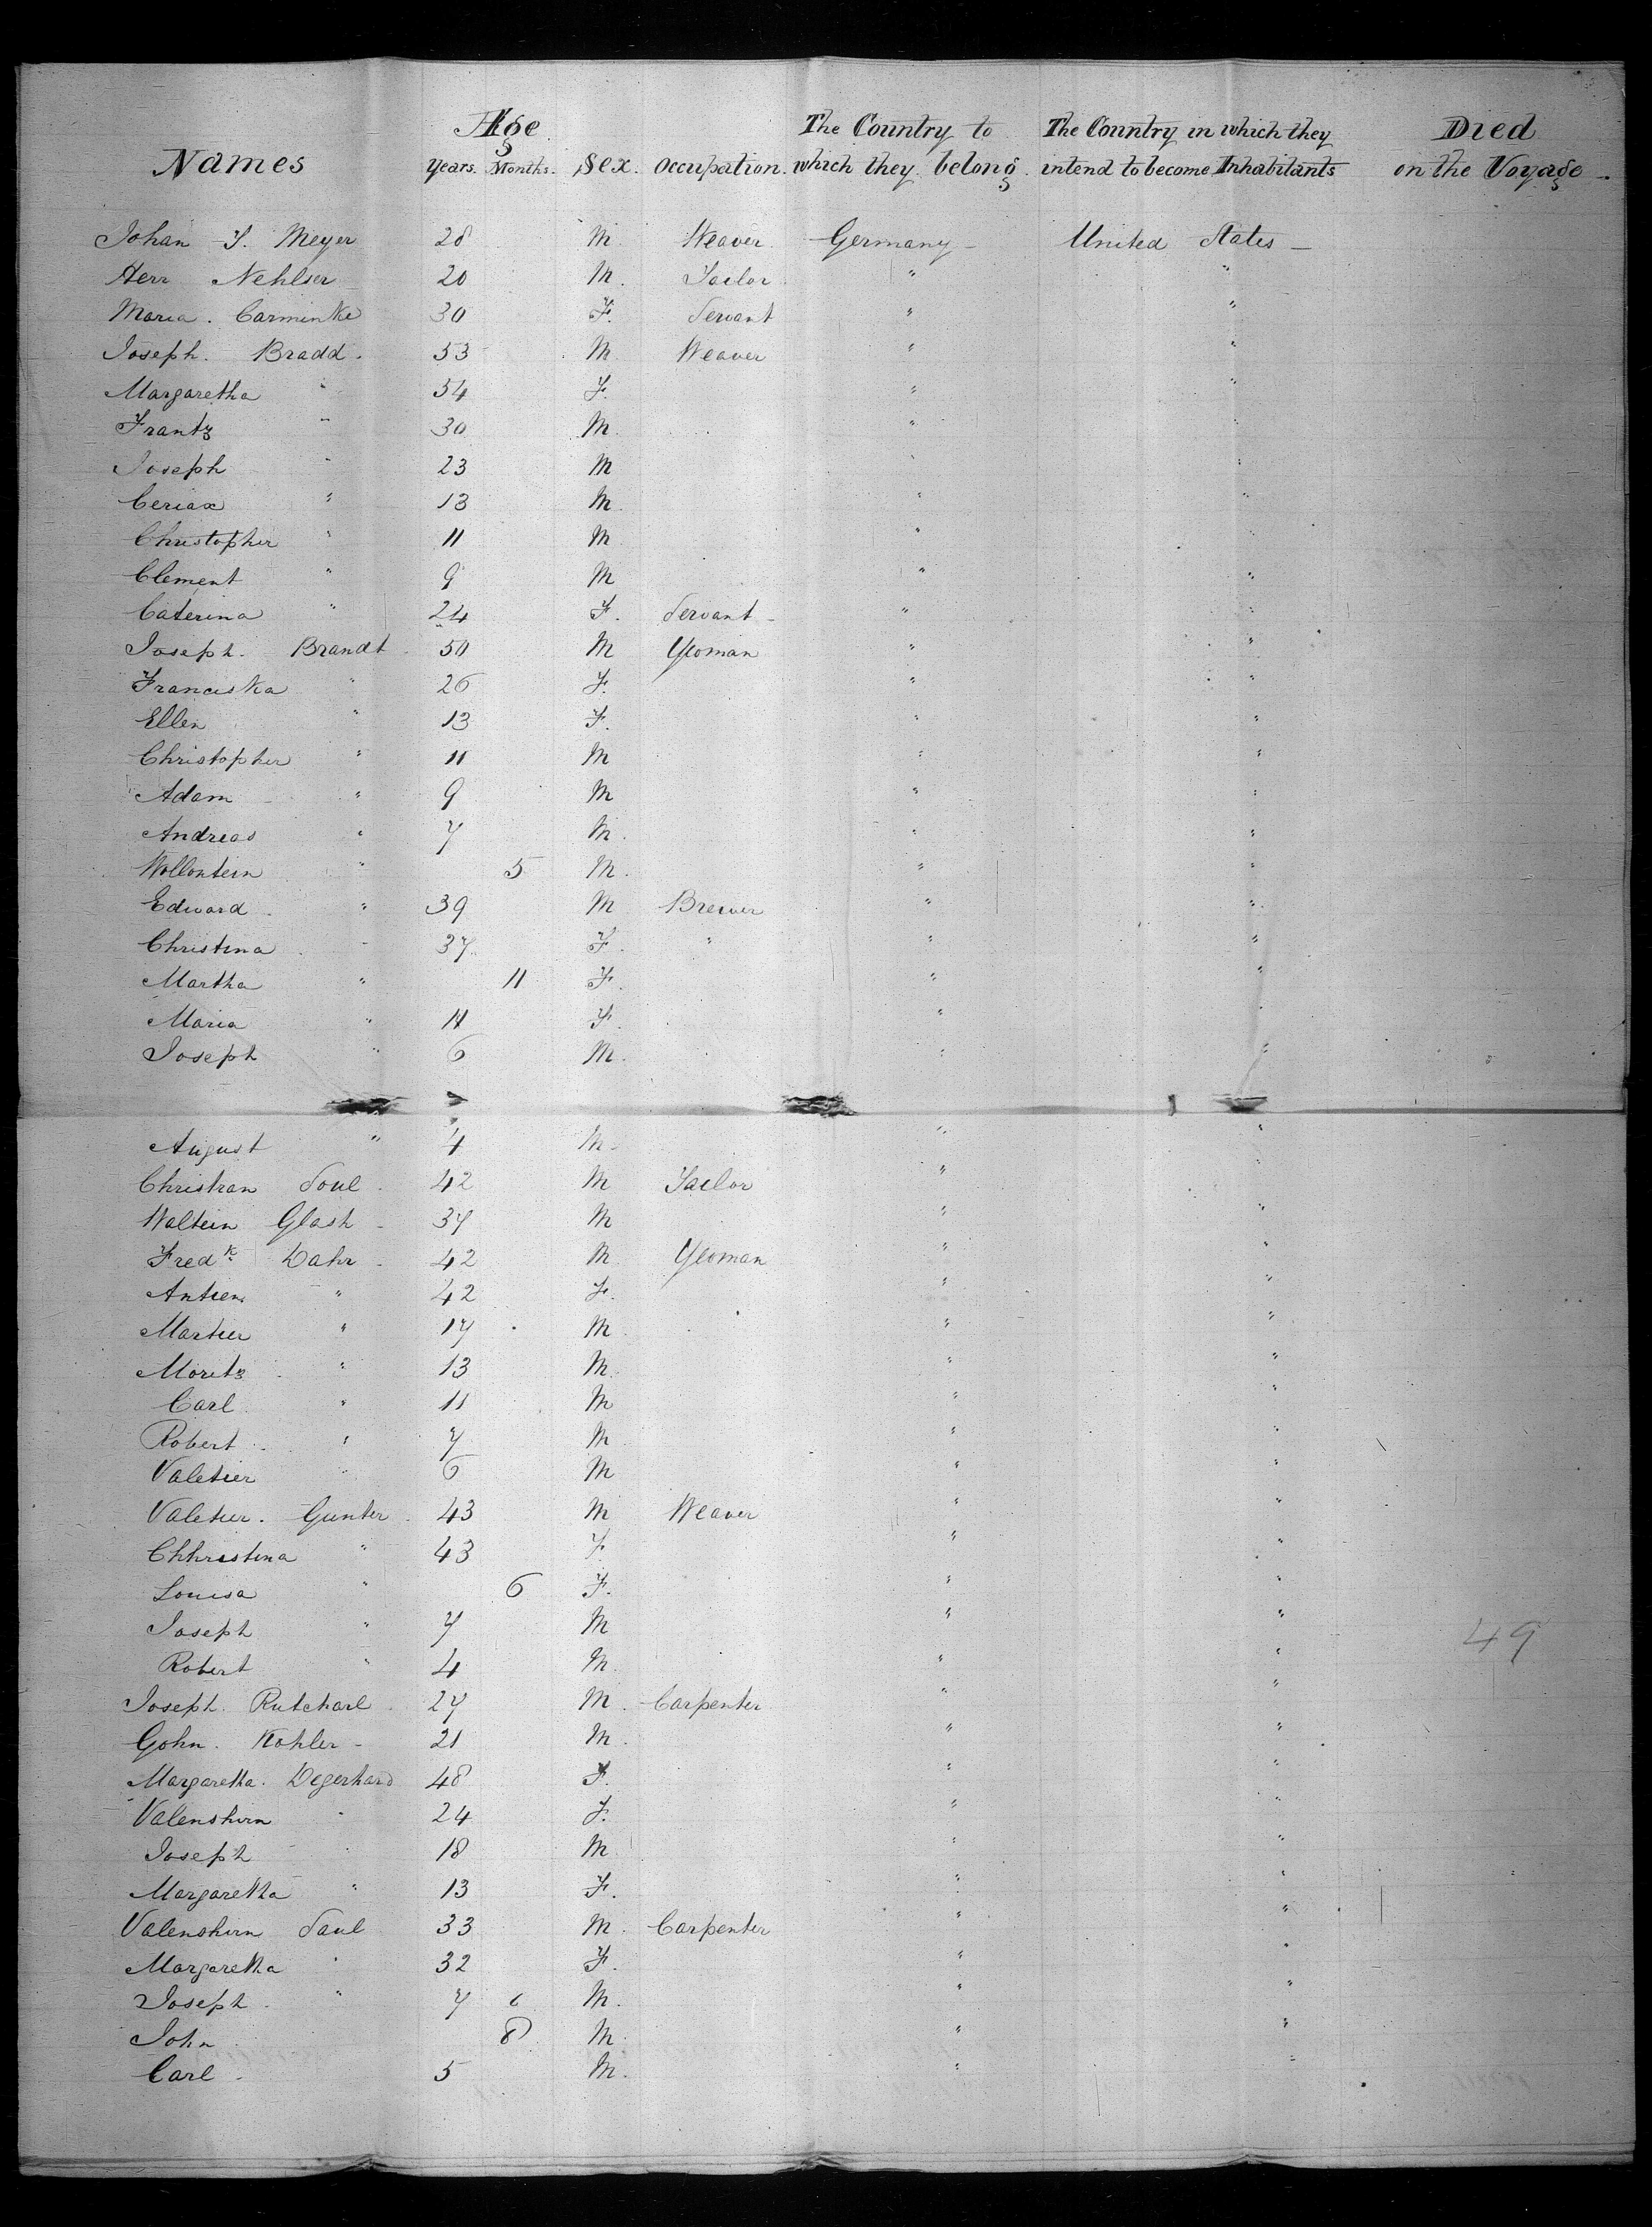 Names Age Years. Months. Sex. Occupation. The Country to which they belong. The Country in which they intend to become Inhabitants Died on the Voyage.
Johan J. Meyer 28 M Weaver Germany - United States -
Herr Nehlser 20 M. Tailor " "
Maria. Carminke 30 F. Servant " "
Joseph. Bradd. 53 M Weaver " "
Margaretha " 54 F. " "
Frantz " 30 M " "
Joseph " 23 M " "
Ceriax " 13 M " "
Christopher " 11 M "
Clement " 9 M " "
Caterina " 24 F. Servant - " "
Joseph. Brandt 50 M Yeoman " "
Franciska " 26 F. " "
Ellen " 13 F. " "
Christopher " 11 M " "
Adam " 9 M " "
Andreas " 7 M. " "
Wollontein " 5 M. " "
Edward " 39 M Brewer " "
Christina " 37 F. " " "
Martha " 11 F. " "
Maria " 11 F. " "
Joseph " 6 M. " "
August " 4 M. " "
Christian Soul 42 M Tailor " "
Waltein Glash - 37 M " "
Fredk Dahr - 42 M Yeoman " "
Antien " 42 F. " "
Martier " 17 M " "
Moritz " 13 M. " "
Carl " 11 M " "
Robert " 7 M " "
Valetier " 6 M " "
Valetier. Gunter 43 M Weaver " "
Chhristina " 43 F. " "
Louisa " 6 F. " "
Joseph " 7 M " "
49
Robert " 4 M. " "
Joseph. Rutcharl 27 M. Carpenter " "
Gohn. Kohler - 21 M. " "
Margaretha. Degerhard 48 F. " "
Valenshirn " 24 F. " "
Joseph " 18 M " "
Margaretha " 13 F. " "
Valenshirn Saul 33 M. Carpenter " "
Margaretha " 32 F. " "
Joseph " 7 6 M. " "
John 8 M. " "
Carl 5 M. " "